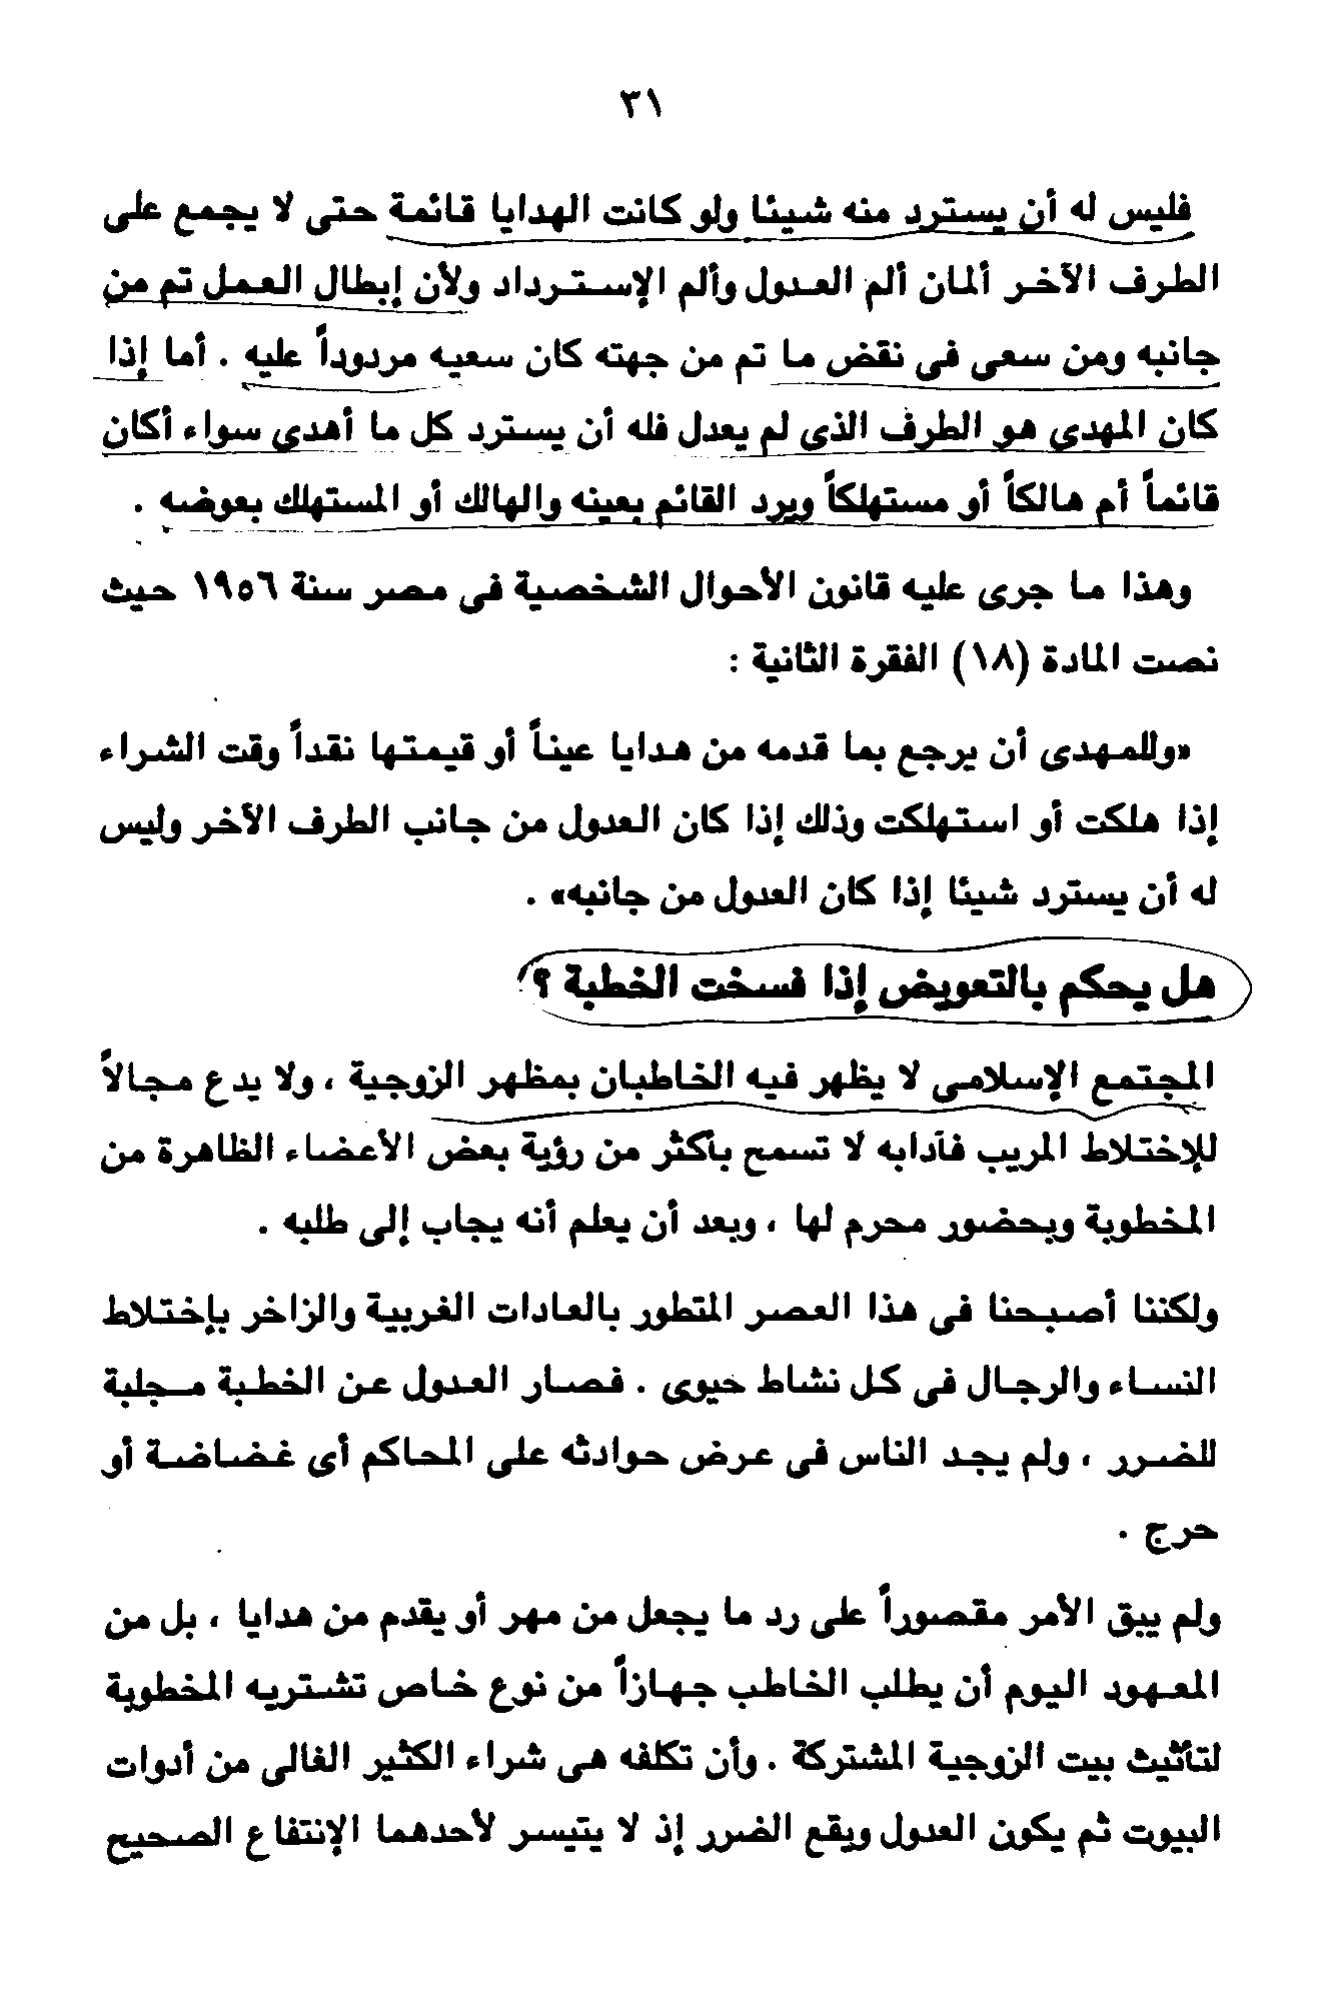 ٣١
فليس له أن يسترد منه شيئا ولو كانت الهدايا قائمة حتى لا يجمع على
الطرف الآخر ألمان ألم العدول وألم الإسترداد ولأن إبطال العمل تم من
جانبه ومن سعى فى نقض ما تم من جهته كان سعيه مردوداً عليه . أما إذا
كان المهدى هو الطرف الذى لم يعدل فله أن يسترد كل ما أهدى سواء أكان
قائماً أم هالكاً أو مستهلكاً ويرد القائم بعينه والهالك أو المستهلك بعوضه .
وهذا ما جرى عليه قانون الأحوال الشخصية فى مصر سنة ١٩٥٦ حيث
نصت المادة (١٨) الفقرة الثانية :
«وللمهدى أن يرجع بما قدمه من هدايا عيناً أو قيمتها نقداً وقت الشراء
إذا هلكت أو استهلكت وذلك إذا كان العدول من جانب الطرف الآخر وليس
له أن يسترد شيئا إذا كان العدول من جانبه» .
هل يحكم بالتعويض إذا فسخت الخطبة ؟
المجتمع الإسلامى لا يظهر فيه الخاطبان بمظهر الزوجية ، ولا يدع مجالاً
للإختلاط المريب فآدابه لا تسمح بأكثر من رؤية بعض الأعضاء الظاهرة من
المخطوبة وبحضور محرم لها ، وبعد أن يعلم أنه يجاب إلى طلبه .
ولكننا أصبحنا فى هذا العصر المتطور بالعادات الغربية والزاخر بإختلاط
النساء والرجال فى كل نشاط حيوى . فصار العدول عن الخطبة مجلبة
للضرر ، ولم يجد الناس فى عرض حوادثه على المحاكم أى غضاضة أو
حرج .
ولم يبق الأمر مقصوراً على رد ما يجعل من مهر أو يقدم من هدايا ، بل من
المعهود اليوم أن يطلب الخاطب جهازاً من نوع خاص تشتريه المخطوبة
لتأثيث بيت الزوجية المشتركة . وأن تكلفه هى شراء الكثير الغالى من أدوات
البيوت ثم يكون العدول ويقع الضرر إذ لا يتيسر لأحدهما الإنتفاع الصحيح